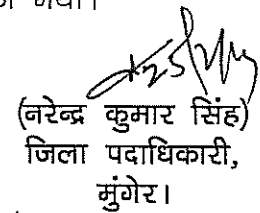 गया।
(नरेन्द्र कुमार सिंह)
जिला पदाधिकारी,
मुंगेर।